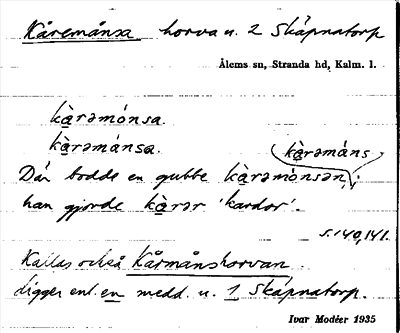 Kåremånsa horva u. 2 Skäpnatorp
Ålems sn, Stranda hd, Kalm. l.
kàrəmónsa.
kàrəmánsa.
kàrəmáns
Där bodde en gubbe kàrəmònsən,;
han gjorde kàrər 'kardor'.
s. 140, 141.
Kallas också Kårmånshorvan
ligger enl. en medd. u. 1 Skäpnatorp.
Ivar Modéer 1935